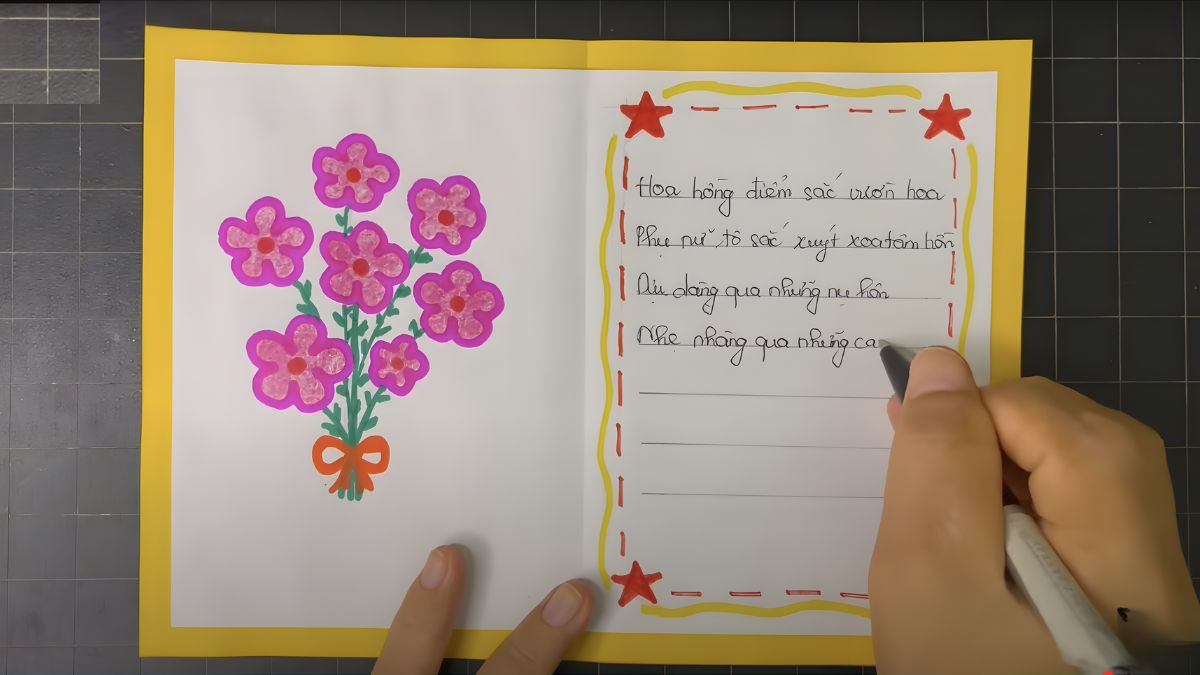 Hoa hồng điểm sắc vườn hoa
Phụ nữ tô sắc xuyết xoa tâm hồn
Dịu dàng qua những nụ hôn
Nhẹ nhàng qua những ca